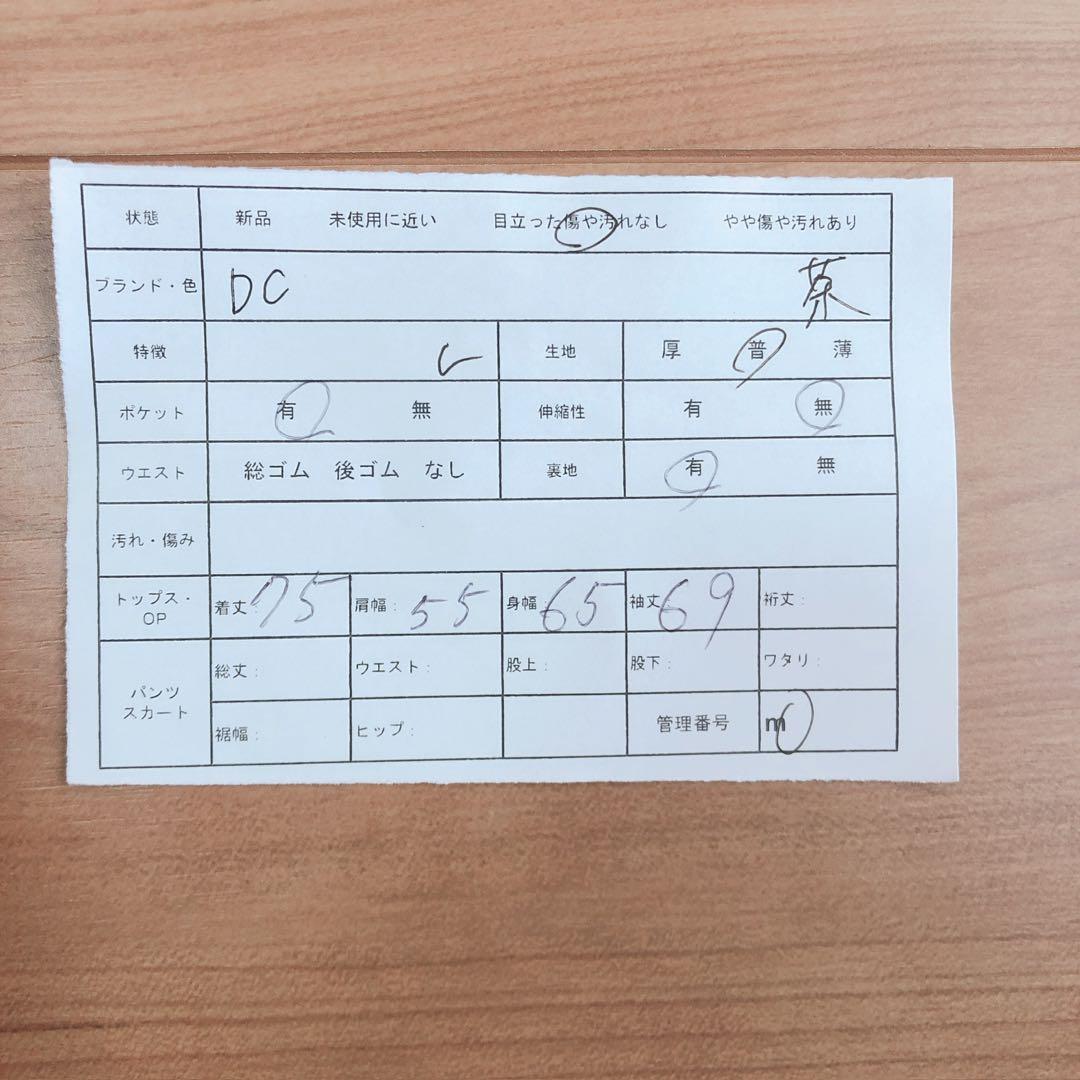 状態 新品 未使用に近い 目立った傷や汚れなし やや傷や汚れあり
ブランド・色 DC 茶
特徴 L 生地 厚 普 薄
ポケット 有 無 伸縮性 有 無
ウエスト 総ゴム 後ゴム なし 裏地 有 無
汚れ・傷み
トップス・OP 着丈: 75 肩幅: 55 身幅 65 袖丈 69 裄丈:
パンツ スカート 総丈: ウエスト: 股上: 股下: ワタリ:
裾幅: ヒップ: 管理番号 m